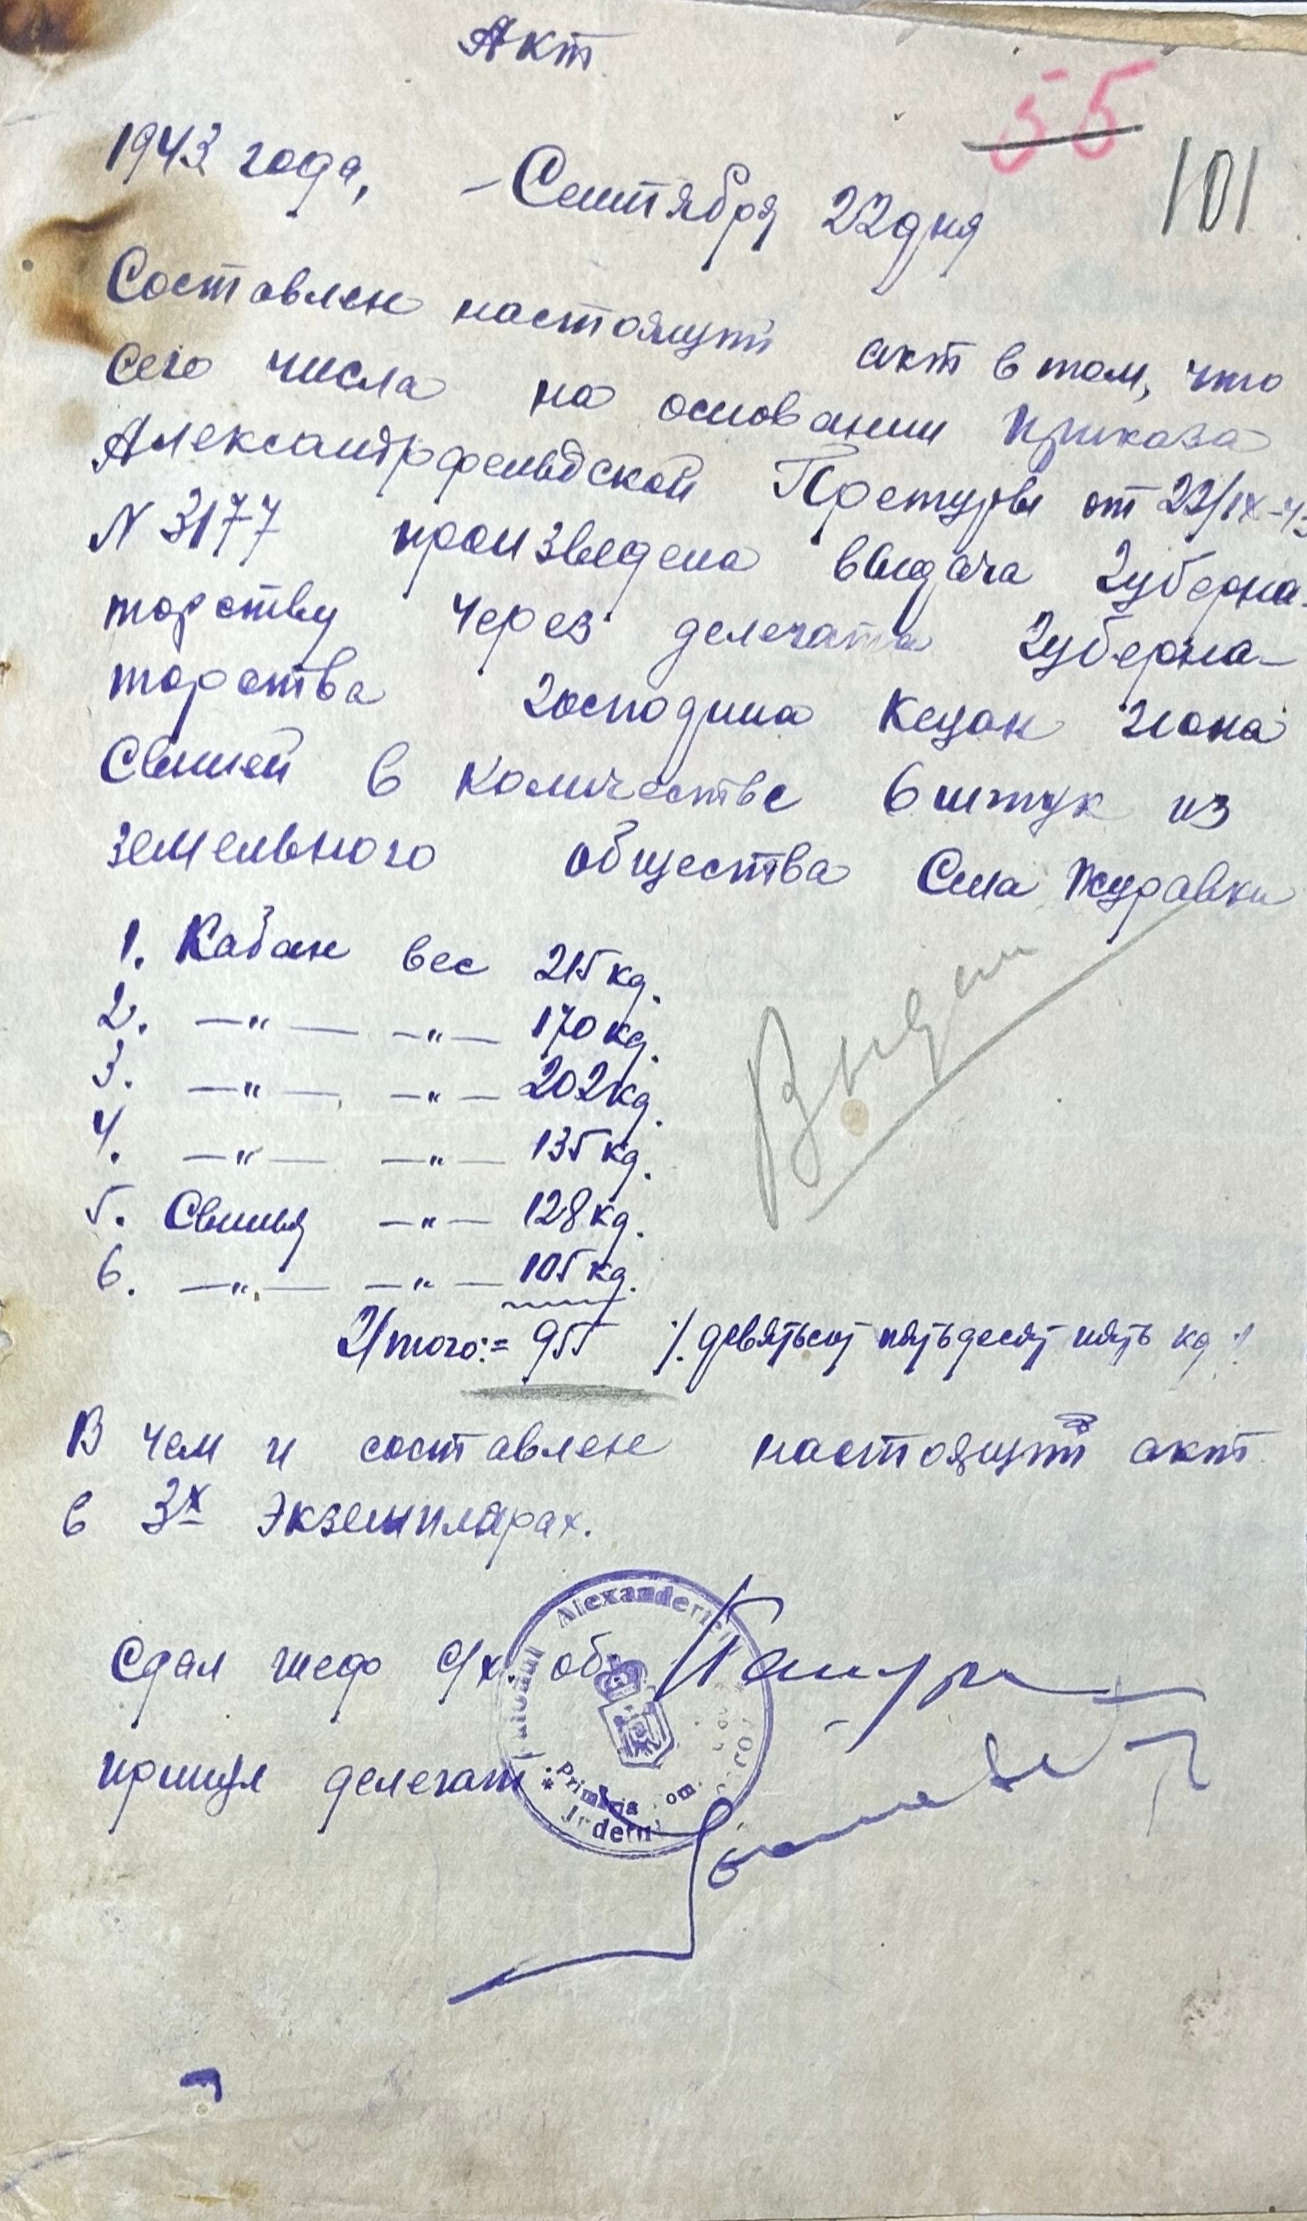 Акт
55
101
1943 года, - Сентября 22 дня
Составлен настоящий акт в том, что
сего числа на основании приказа
Александрфельдской Претуры от 22/IX-43
N 3177 произведена выдача Губерна-
торству через делегата Губерна-
торства Господина Кецан Иона
Свиней в количестве 6 штук из
земельного общества Села Журавки
1. Кабан вес 215 кg.
2. —"— —"— 170 кg.
3. —"— —"— 202 кg.
4. —"— —"— 135 кg.
5. Свинья —"— 128 кg.
6. —"— —"— 105 кg.
Выдан
Итого:= 955 ./. девятьсот пятьдесят пять кg ./.
В чем и составлен настоящий акт
в 3х экземплярах.
Сдал шеф с/х. об.
принял делегат:
Alexanderfel
Primăria com.